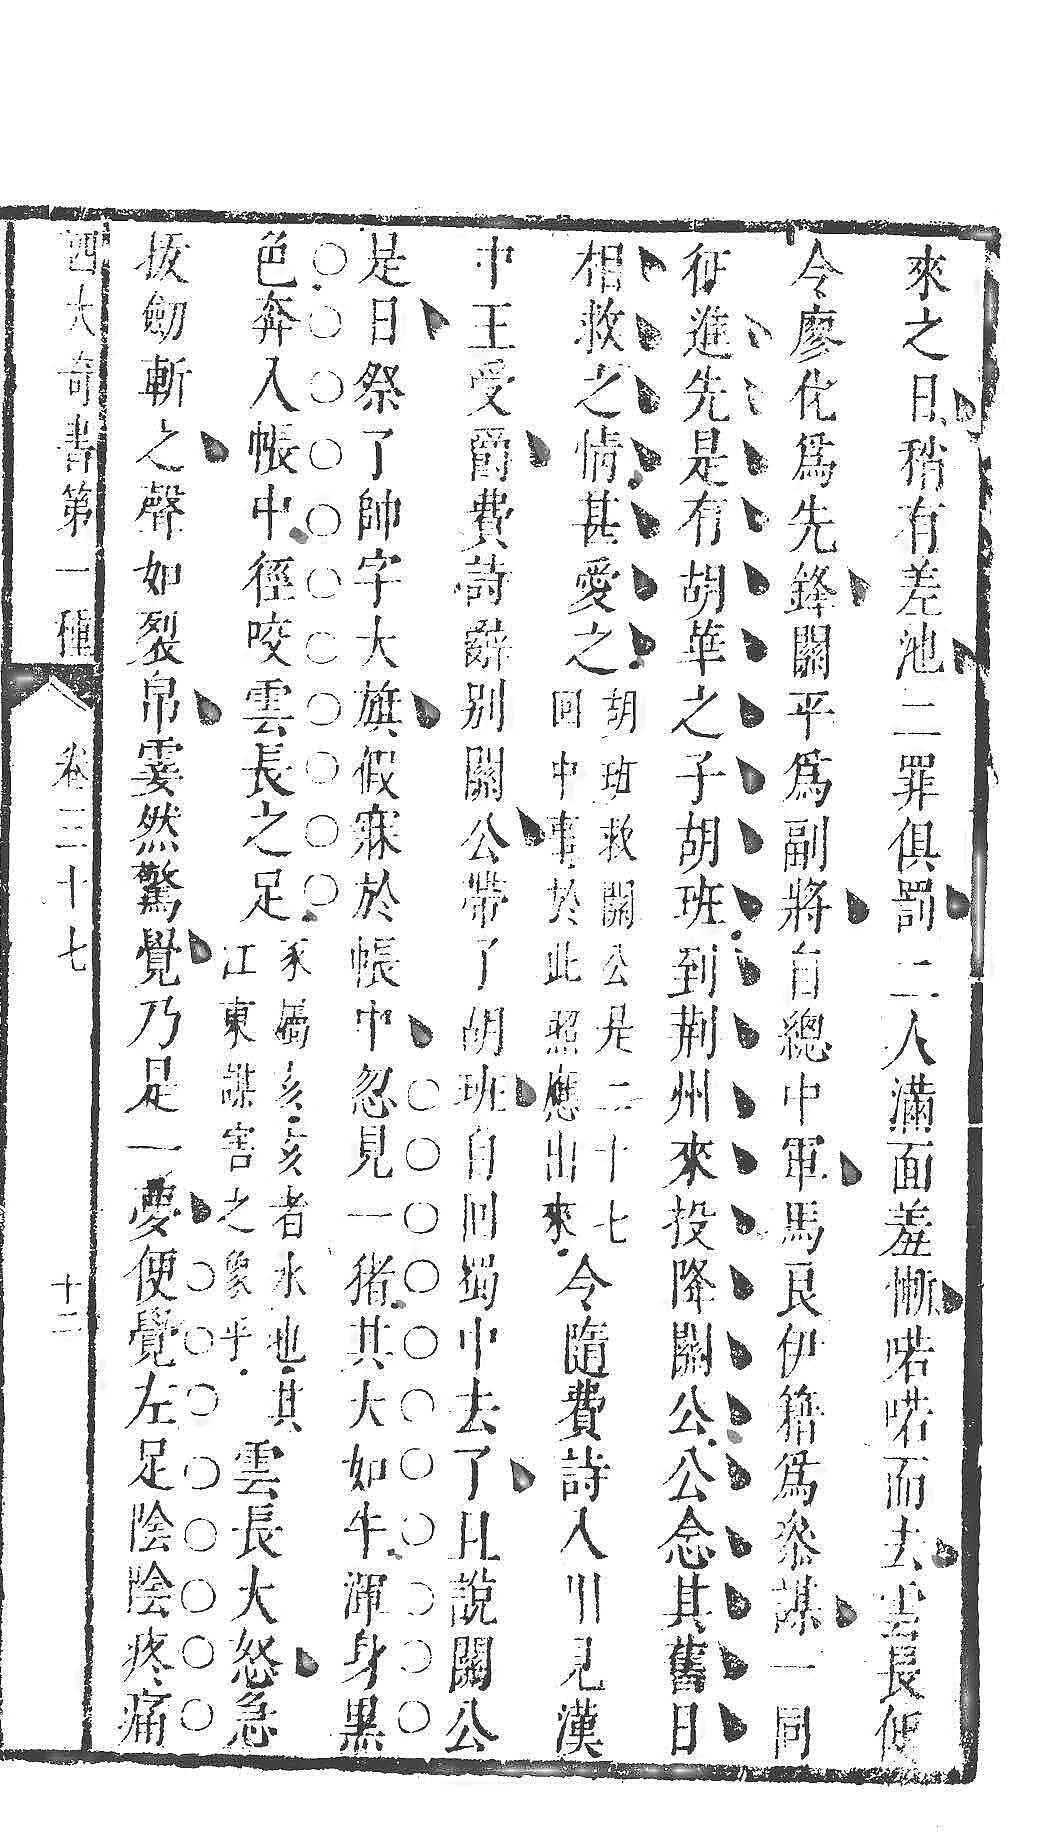 來之日稍有差池二罪俱罰二人滿面羞慚喏喏而去雲長便
令廖化爲先鋒關平爲副將自總中軍馬良伊籍爲叅謀一同
征進先是有胡華之子胡班到荆州來投降關公公念其舊日
相救之情甚愛之
胡班救關公是二十七
回中事於此照應出來
今隨費詩入川見漢
中王受爵費詩辭別關公帶了胡班自回蜀中去了且說關公
是日祭了帥字大旗假寐於帳中忽見一猪其大如牛渾身黑
色奔入帳中徑咬雲長之足
豕屬亥亥者水也其
江東謀害之象乎
雲長大怒急
拔劒斬之聲如裂帛霎然驚覺乃是一夢便覺左足陰陰疼痛
四大奇書第一種
卷三十七
十二